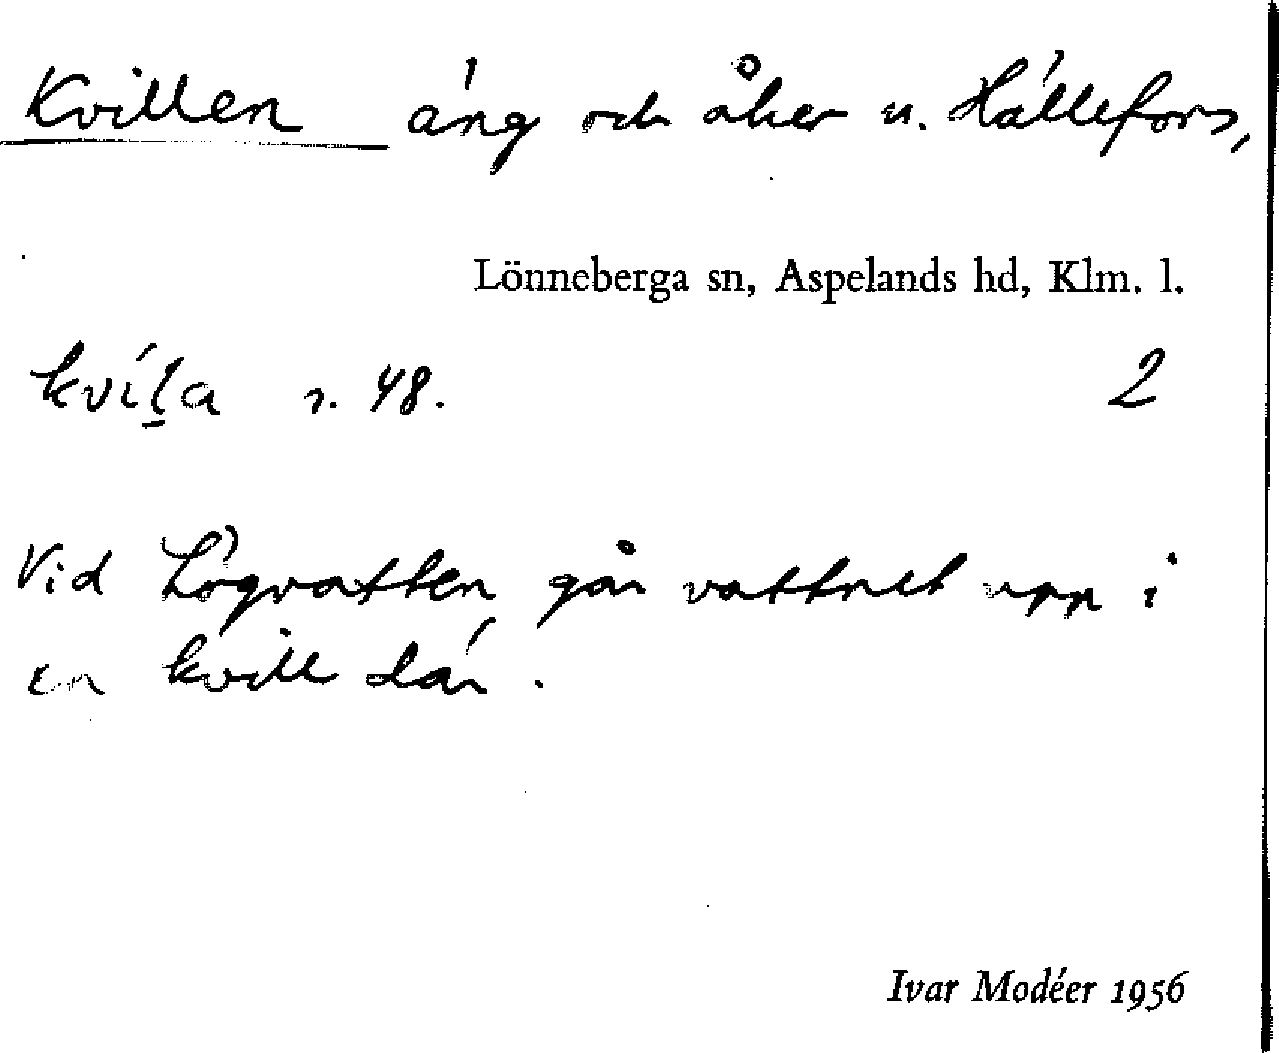 Kvillen äng och åker u. Hällefors,
Lönneberga sn, Aspelands hd, Klm. l.
kví̱la s. 48. 2
Vid Högvatten går vattnet upp i
en kvill där.
Ivar Modéer 1956